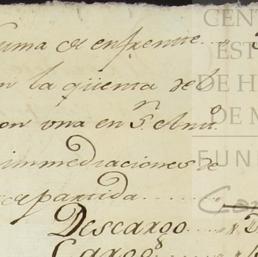 uma de enfrente
n la qüenta de
on una en Sn. Antto
immediaciones de
partida
Descargo
Cargo
CEN
EST
DE H
DE M
FUN